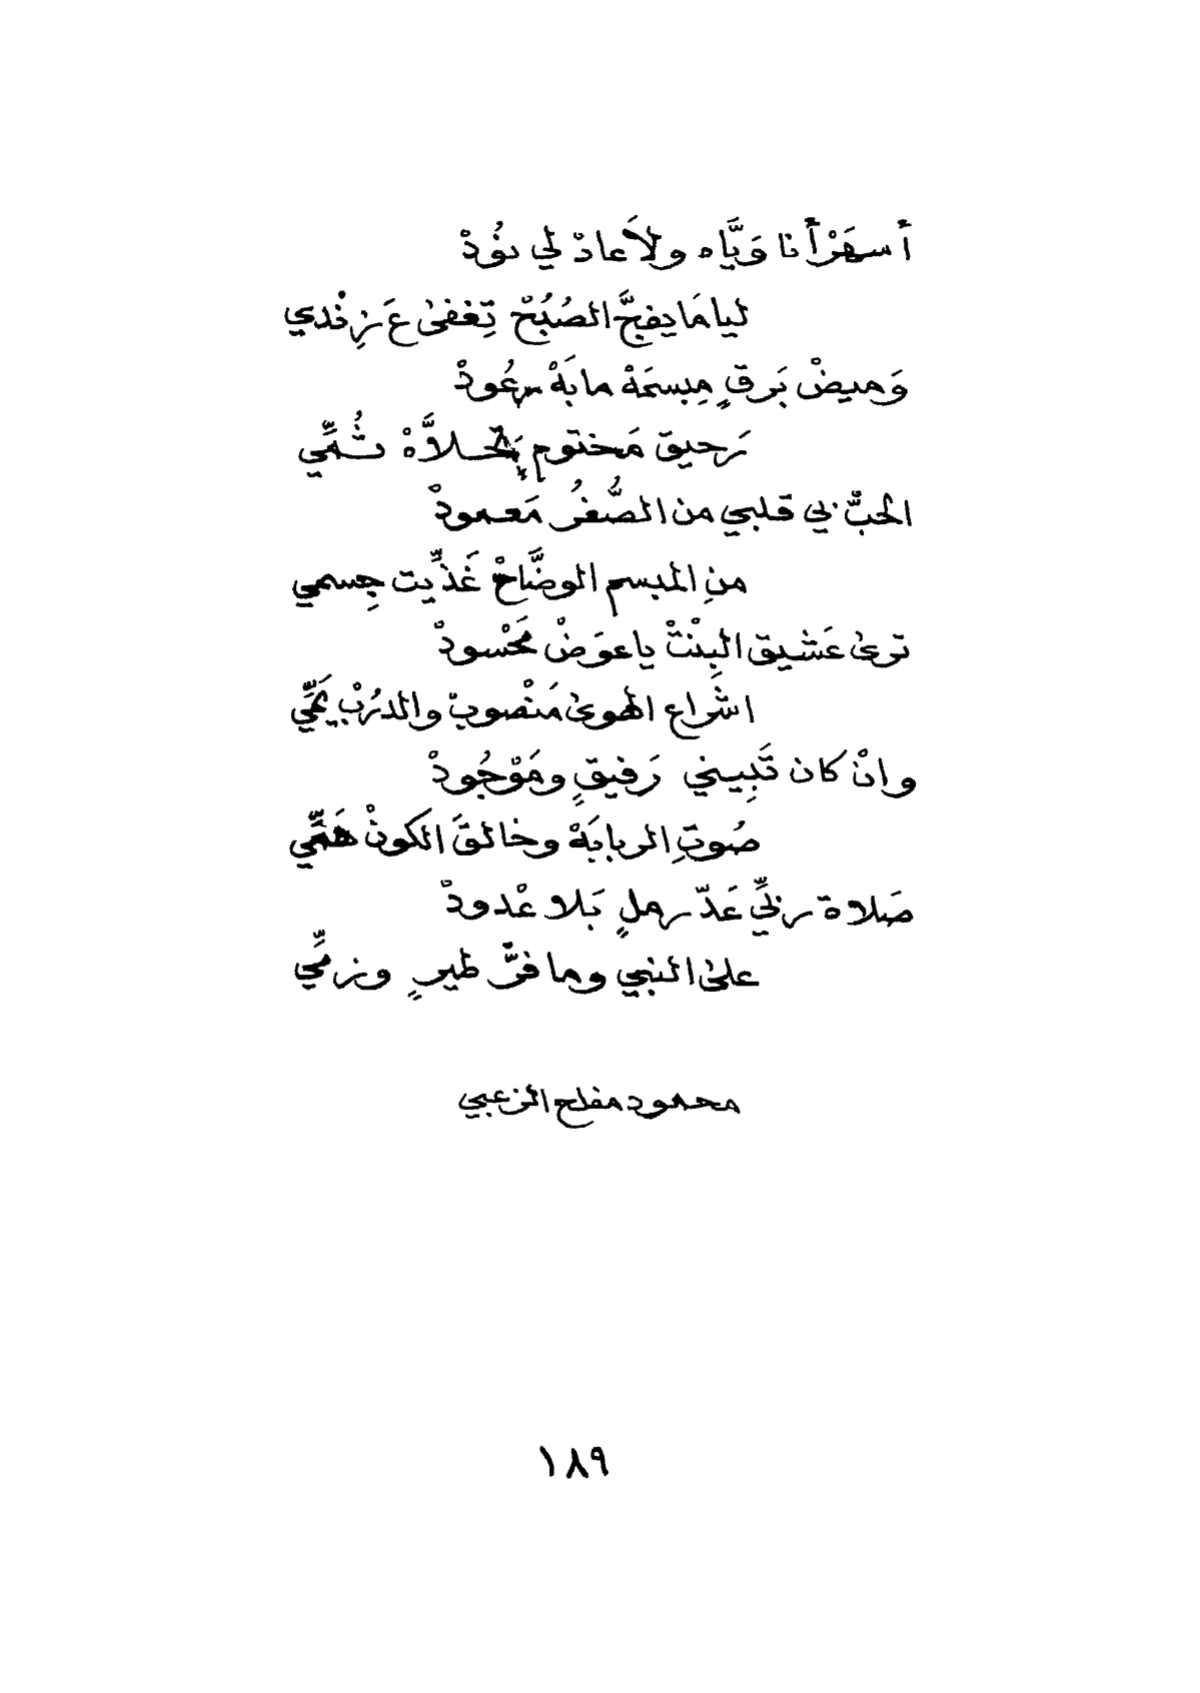 أسهَرْ أنا وَيَّاه ولاَ عادْ لي نُودْ
ليا مَا يفجَّ الصُبُحْ تِغفىٰ عَ زِنْدي
وَميضْ بَرقٍ مِبسمَهْ مابَهْ رعُودْ
رَحيق مَختوم يَحلاَّهْ ثُمِّي
الحبّْ بي قلبي من الصُّغُرْ مَعمودْ
منِ المبسم الوضَّاحْ غَذِّيت جِسمي
ترىٰ عَشيق البِنْتْ ياعوَضْ مَحْسودْ
اشَراع الهوىٰ مَنْصوبْ والدرُبْ يَمِّي
وانْ كان تَبِيني رَفيقٍ ومَوْجُودْ
صُوتِ الربابَهْ وخالقَ الكونْ هَمِّي
صَلاة ربِّي عَدّ رملٍ بَلا عْدودْ
علىٰ النبي وما فرَّ طيرٍ وزمِّي
محمود مفلح الزعبي
١٨٩